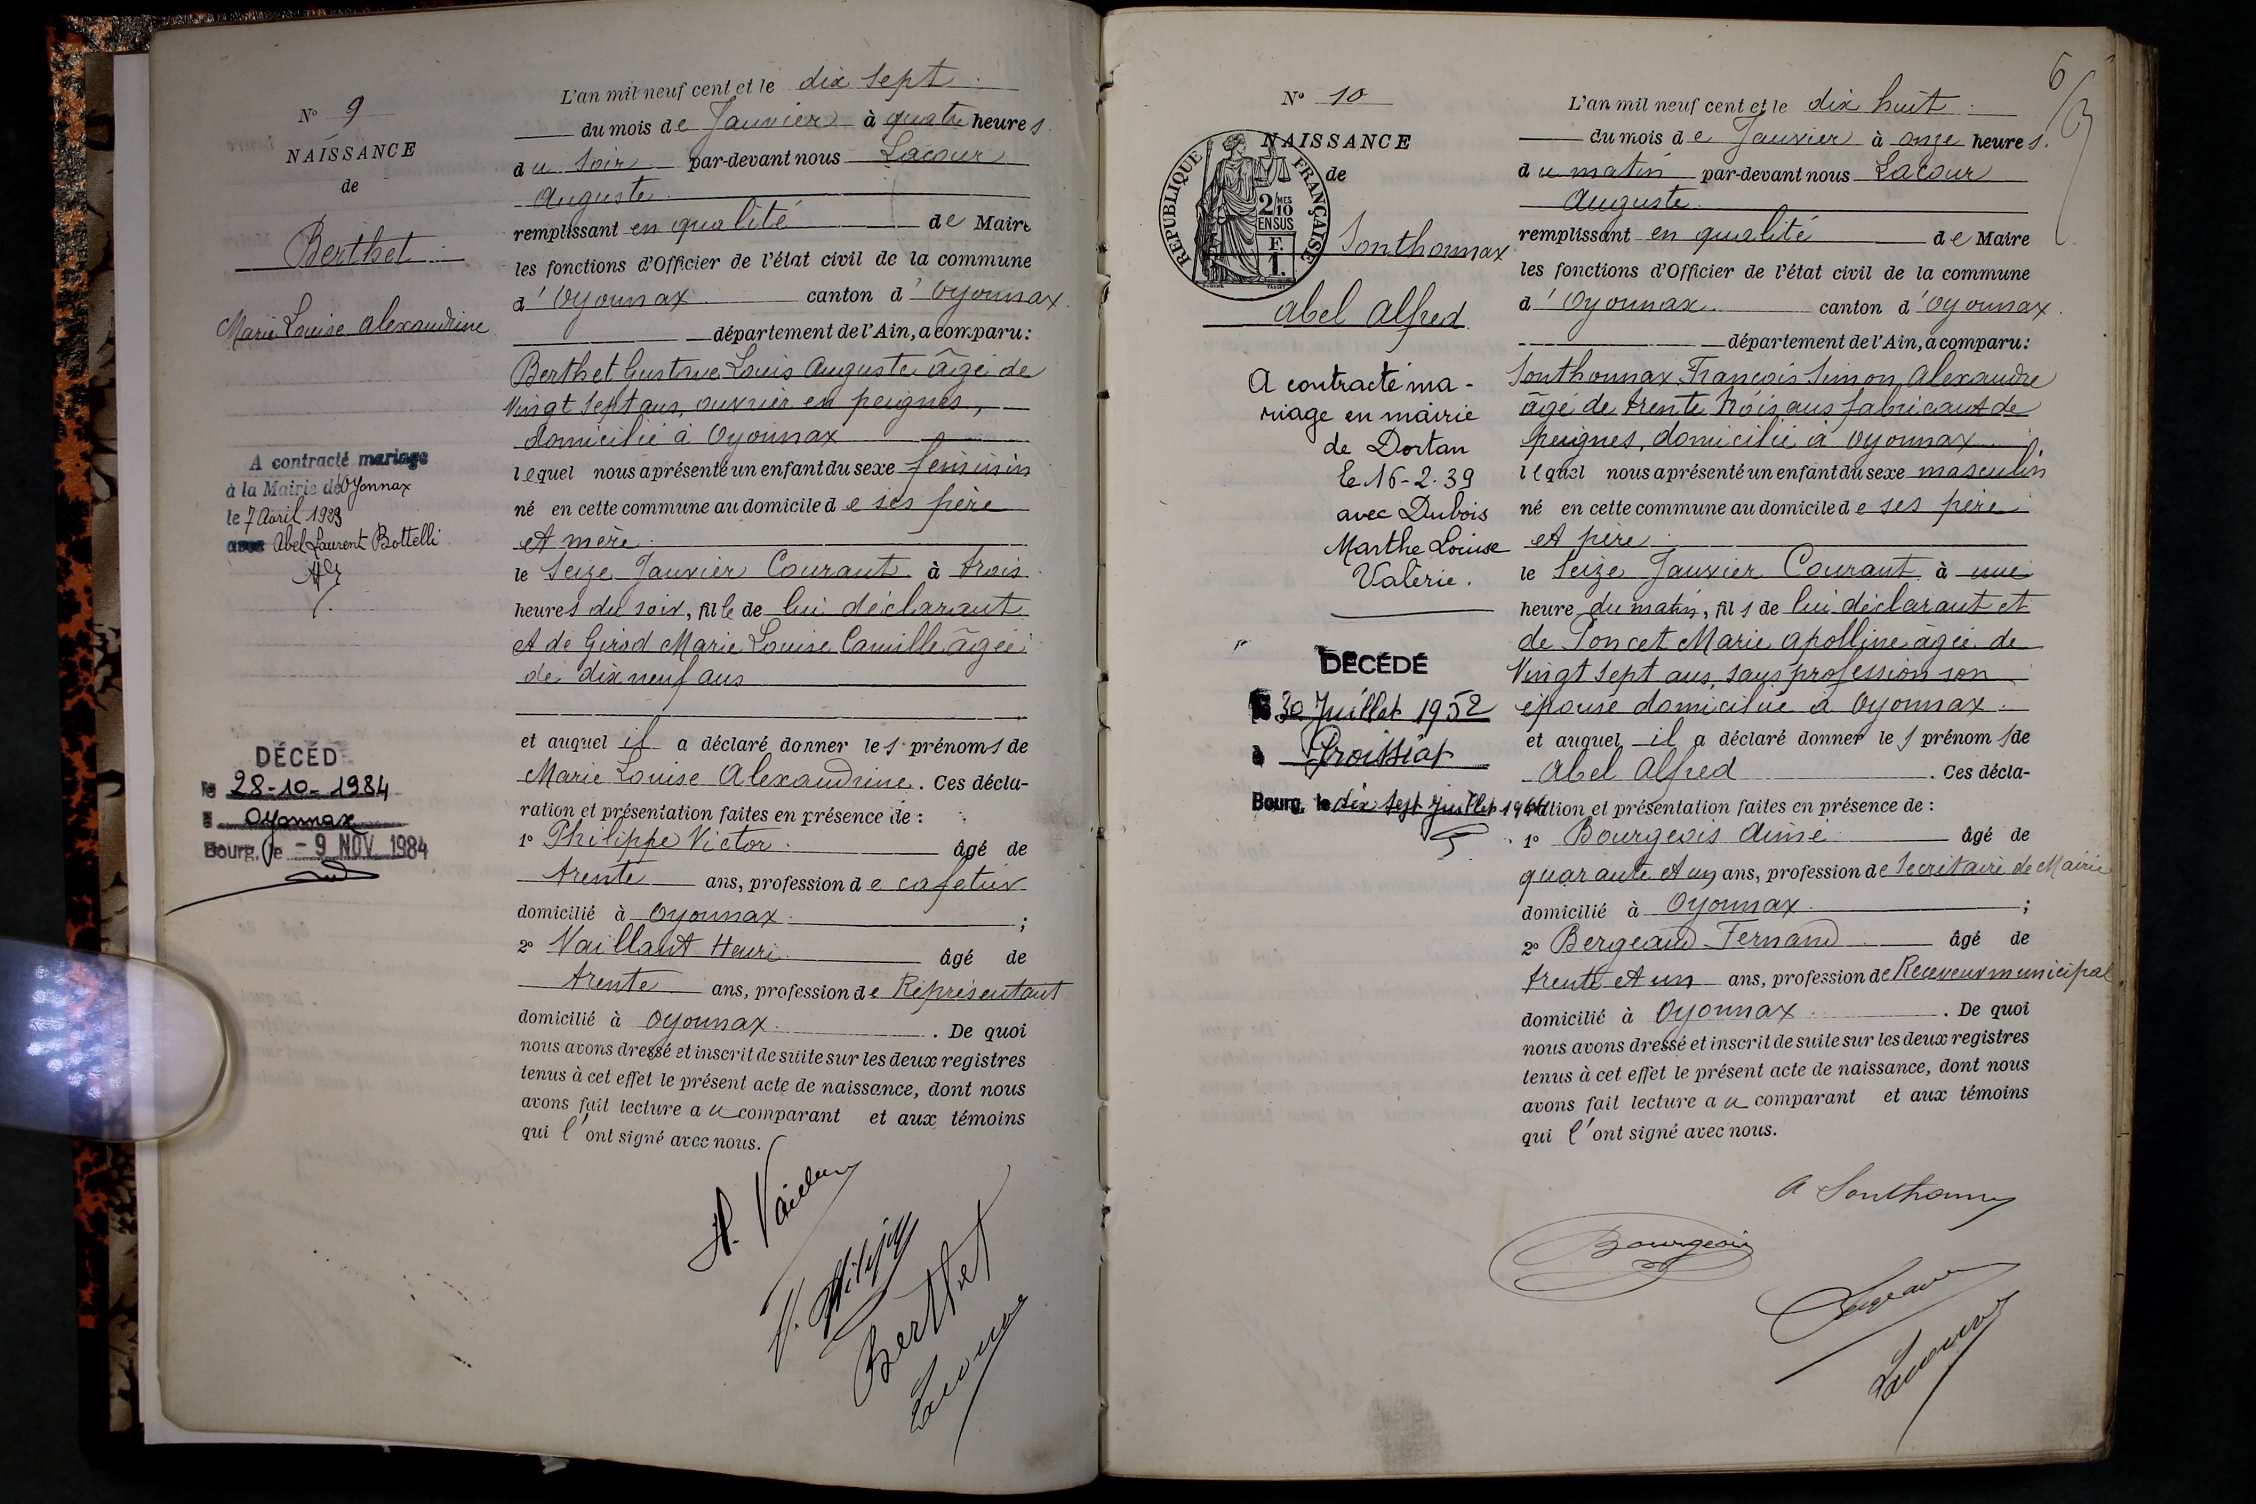 N° 9
NAISSANCE
de
Berthet
Marie Louise Alexandrine
A contracté mariage
à la Mairie de Oyonnax
le 7 Avril 1923
avec Abel Laurent Bottelli
DÉCÉD
le 28-10-1984
à Oyonnax
Bourg, le - 9 NOV 1984
L'an mil neuf cent et le dix sept
du mois de Janvier à quatre heures
du soir par-devant nous Lacour
Auguste
remplissant en qualité de Maire
les fonctions d'Officier de l'état civil de la commune
d'Oyonnax canton d'Oyonnax
département de l'Ain, a comparu:
Berthet Gustave Louis Auguste âgé de
vingt sept ans, ouvrier en peignes,
domicilié à Oyonnax
lequel nous a présenté un enfant du sexe féminin
né en cette commune au domicile de ses père
et mère
le seize Janvier Courant à trois
heures du soir, fille de lui déclarant
et de Girod Marie Louise Camille âgée
de dix neuf ans
et auquel il a déclaré donner les prénoms de
Marie Louise Alexandrine. Ces décla-
ration et présentation faites en présence de :
1° Philippe Victor âgé de
trente ans, profession de cafetier
domicilié à Oyonnax ;
2° Vaillant Henri âgé de
trente ans, profession de Représentant
domicilié à Oyonnax. De quoi
nous avons dressé et inscrit de suite sur les deux registres
tenus à cet effet le présent acte de naissance, dont nous
avons fait lecture au comparant et aux témoins
qui l'ont signé avec nous.
Berthet
Lacour
6
N° 10
NAISSANCE
de
RÉPUBLIQUE FRANÇAISE
2 MES
10
EN SUS
F.
1.
Sonthonnax
Abel Alfred
A contracté ma-
riage en mairie
de Dortan
le 16-2-39
avec Dubois
Marthe Louise
Valérie.
DÉCÉDÉ
le 30 Juillet 1952
à Groissiat
Bourg, le dix sept juillet 1964
L'an mil neuf cent et le dix huit
du mois de Janvier à onze heures.
du matin par-devant nous Lacour
Auguste
remplissant en qualité de Maire
les fonctions d'Officier de l'état civil de la commune
d'Oyonnax canton d'Oyonnax
département de l'Ain, a comparu:
Sonthonnax François Simon Alexandre
âgé de trente trois ans fabricant de
peignes, domicilié à Oyonnax
lequel nous a présenté un enfant du sexe masculin
né en cette commune au domicile de ses père
et père
le seize Janvier Courant à une
heure du matin, fils de lui déclarant et
de Poncet Marie Apolline âgée de
vingt sept ans, sans profession son
épouse domiciliée à Oyonnax.
et auquel il a déclaré donner les prénoms de
Abel Alfred. Ces décla-
ration et présentation faites en présence de :
1° Bourgeois Aimé âgé de
quarante et un ans, profession de Secrétaire de Mairie
domicilié à Oyonnax ;
2° Bergeaud Fernand âgé de
trente et un ans, profession de Receveur municipal
domicilié à Oyonnax. De quoi
nous avons dressé et inscrit de suite sur les deux registres
tenus à cet effet le présent acte de naissance, dont nous
avons fait lecture au comparant et aux témoins
qui l'ont signé avec nous.
A Sonthonnax
Bourgeois
Lacour